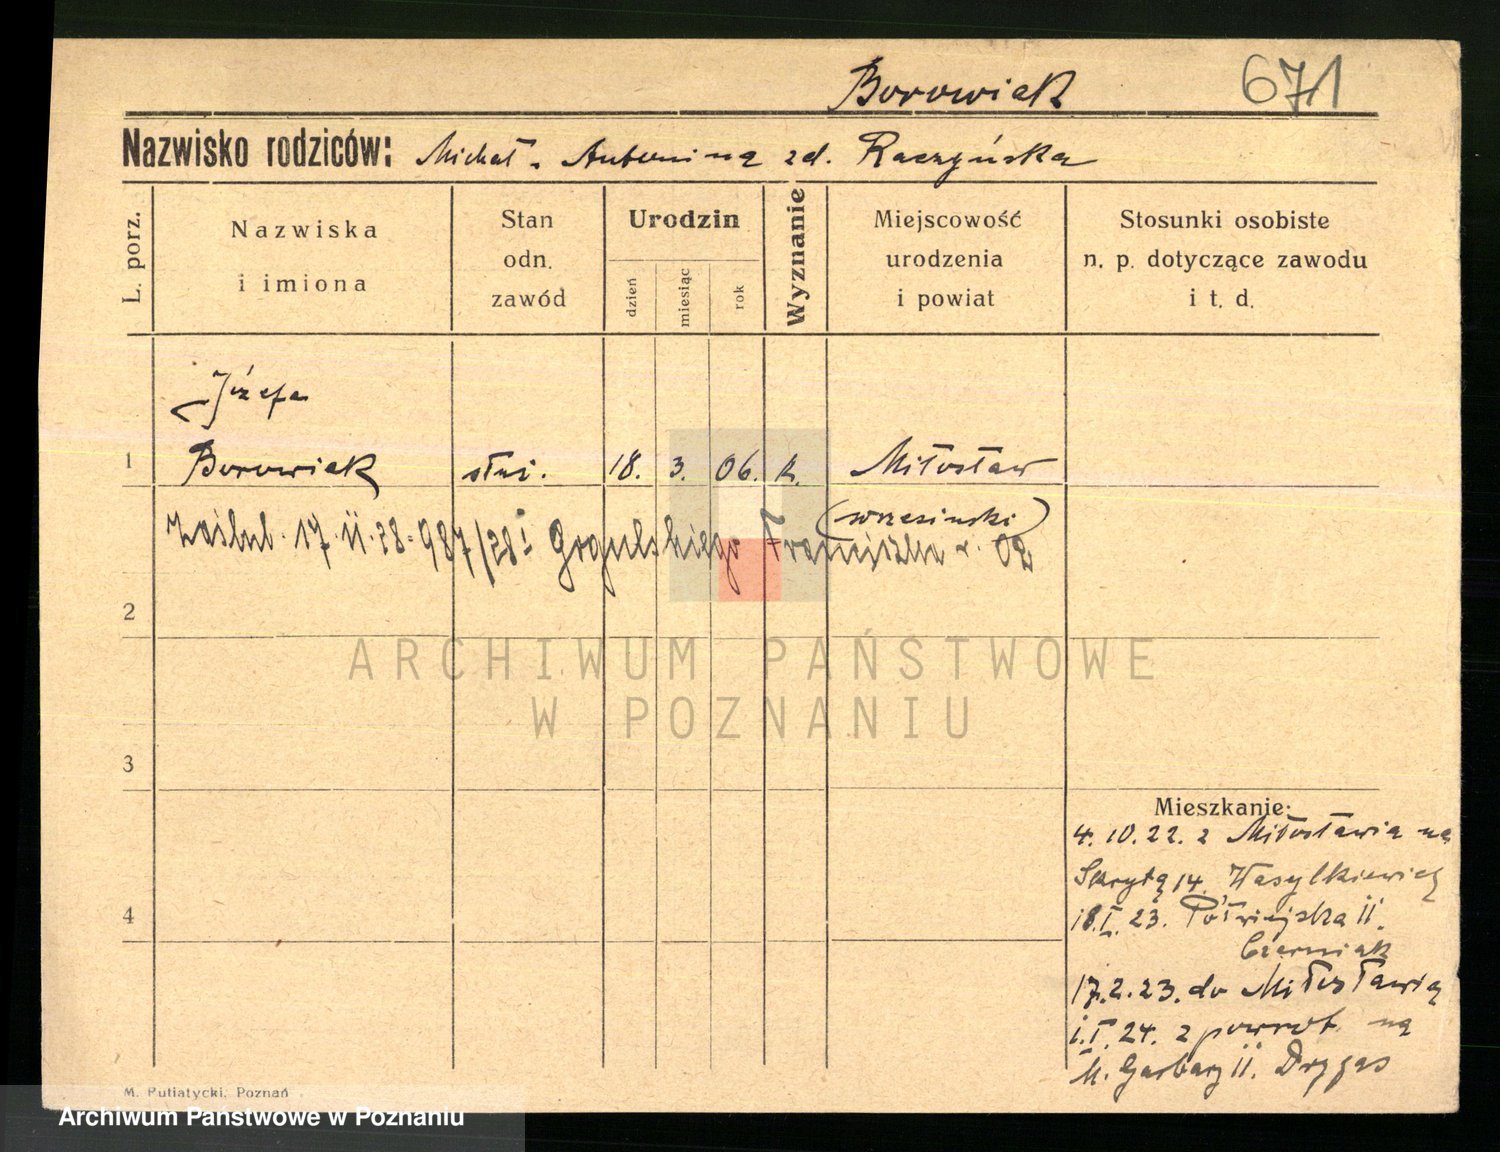 Borowiak 671
Nazwisko rodziców: Michał. Antonina zd. Raczyńska
L. porz.
Nazwiska
i imiona
Stan
odn.
zawód
Urodzin
dzień
miesiąc
rok
Wyznanie
Miejscowość
urodzenia
i powiat
Stosunki osobiste
n. p. dotyczące zawodu
i t. d.
Józefa
1 Borowiak służ. 18. 3. 06. k. Miłosław
(wrzesiński)
Zaślub. 17.11.28. 987/28 Gogulskiego Franciszka r. 02
2
ARCHIWUM PAŃSTWOWE
W POZNANIU
3
Mieszkanie:
4. 10. 22. z Miłosławia na
Skrytą 14. Wasylkiewicz
18.I.23. Półwiejska 11.
Czerniak
4
17.2.23. do Miłosławia
1.I.24. z powrot. na
M. Garbary 11. Drygas
M. Putiatycki, Poznań
Archiwum Państwowe w Poznaniu